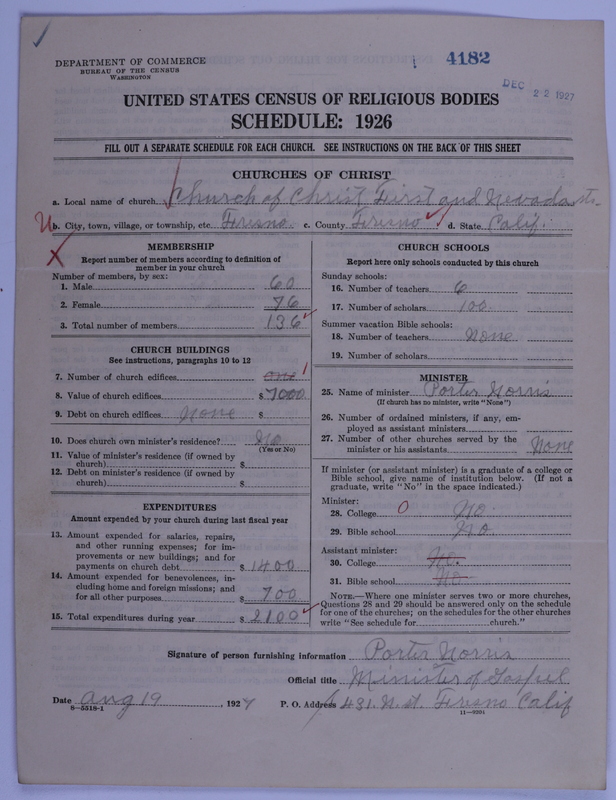 4182
DEPARTMENT OF COMMERCE
BUREAU OF THE CENSUS
WASHINGTON
DEC 22 1927
UNITED STATES CENSUS OF RELIGIOUS BODIES
SCHEDULE: 1926
FILL OUT A SEPARATE SCHEDULE FOR EACH CHURCH. SEE INSTRUCTIONS ON THE BACK OF THIS SHEET
CHURCHES OF CHRIST
a. Local name of church Church of Christ First and Nevada sts.
b. City, town, village, or township, etc. Fresno c. County Fresno d. State Calif.
MEMBERSHIP
Report number of members according to definition of
member in your church
Number of members, by sex:
1. Male 60
2. Female 76
3. Total number of members 136
CHURCH BUILDINGS
See instructions, paragraphs 10 to 12
7. Number of church edifices one 1
8. Value of church edifices $7000
9. Debt on church edifices None $
10. Does church own minister's residence? No
(Yes or No)
11. Value of minister's residence (if owned by
church) $
12. Debt on minister's residence (if owned by
church) $
EXPENDITURES
Amount expended by your church during last fiscal year
13. Amount expended for salaries, repairs,
and other running expenses; for im-
provements or new buildings; and for
payments on church debt $1400
14. Amount expended for benevolences, in-
cluding home and foreign missions; and
for all other purposes 700
15. Total expenditures during year $2100
CHURCH SCHOOLS
Report here only schools conducted by this church
Sunday schools:
16. Number of teachers 6
17. Number of scholars 100
Summer vacation Bible schools:
18. Number of teachers None
19. Number of scholars
MINISTER
25. Name of minister Porter Norris
(If church has no minister, write "None")
26. Number of ordained ministers, if any, em-
ployed as assistant ministers
27. Number of other churches served by the
minister or his assistants None
If minister (or assistant minister) is a graduate of a college or
Bible school, give name of institution below. (If not a
graduate, write "No" in the space indicated.)
Minister:
28. College 0 No
29. Bible school No
Assistant minister:
30. College No.
31. Bible school No
NOTE.—Where one minister serves two or more churches,
Questions 28 and 29 should be answered only on the schedule
for one of the churches; on the schedules for the other churches
write "See schedule for church."
Signature of person furnishing information Porter Norris
Official title Minister of Gospel
Date Aug 19, 1927 P. O. Address 431. N. st. Fresno Calif
8—5518-1 11—9201